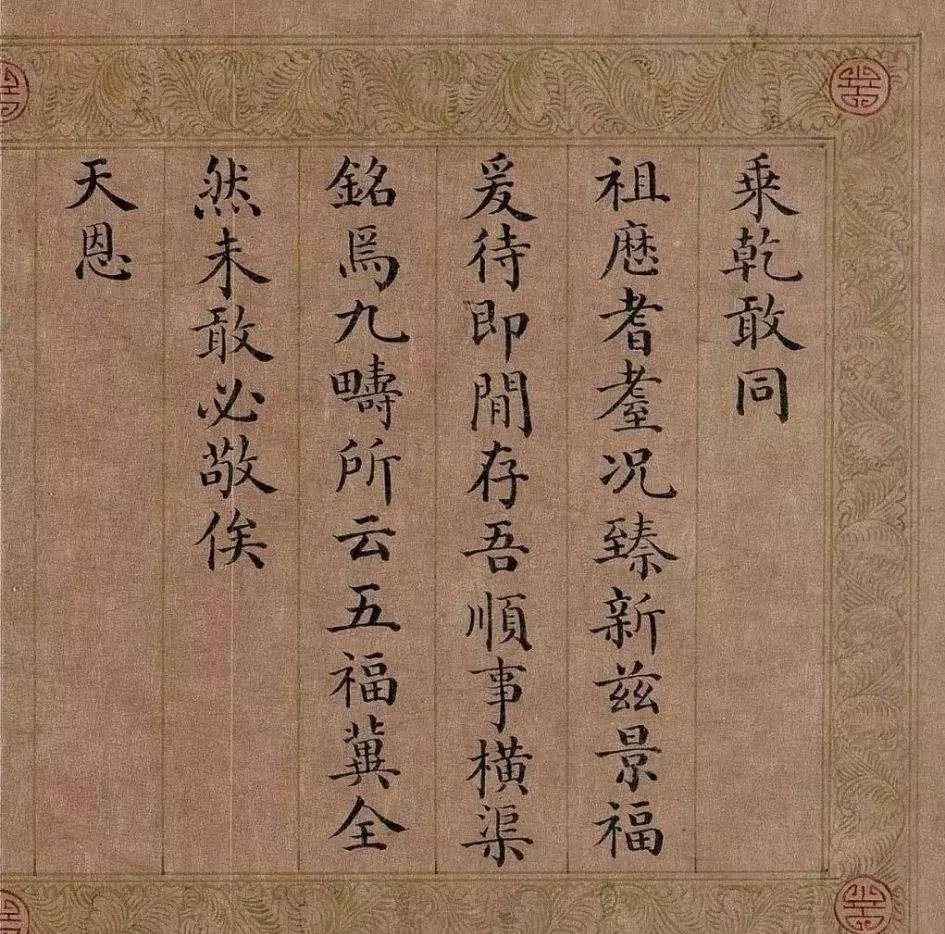 乗乾敢同
祖歴耆耋况臻新兹景福
爰待即閒存吾順事橫渠
銘爲九疇所云五福冀全
然未敢必敬俟
天恩